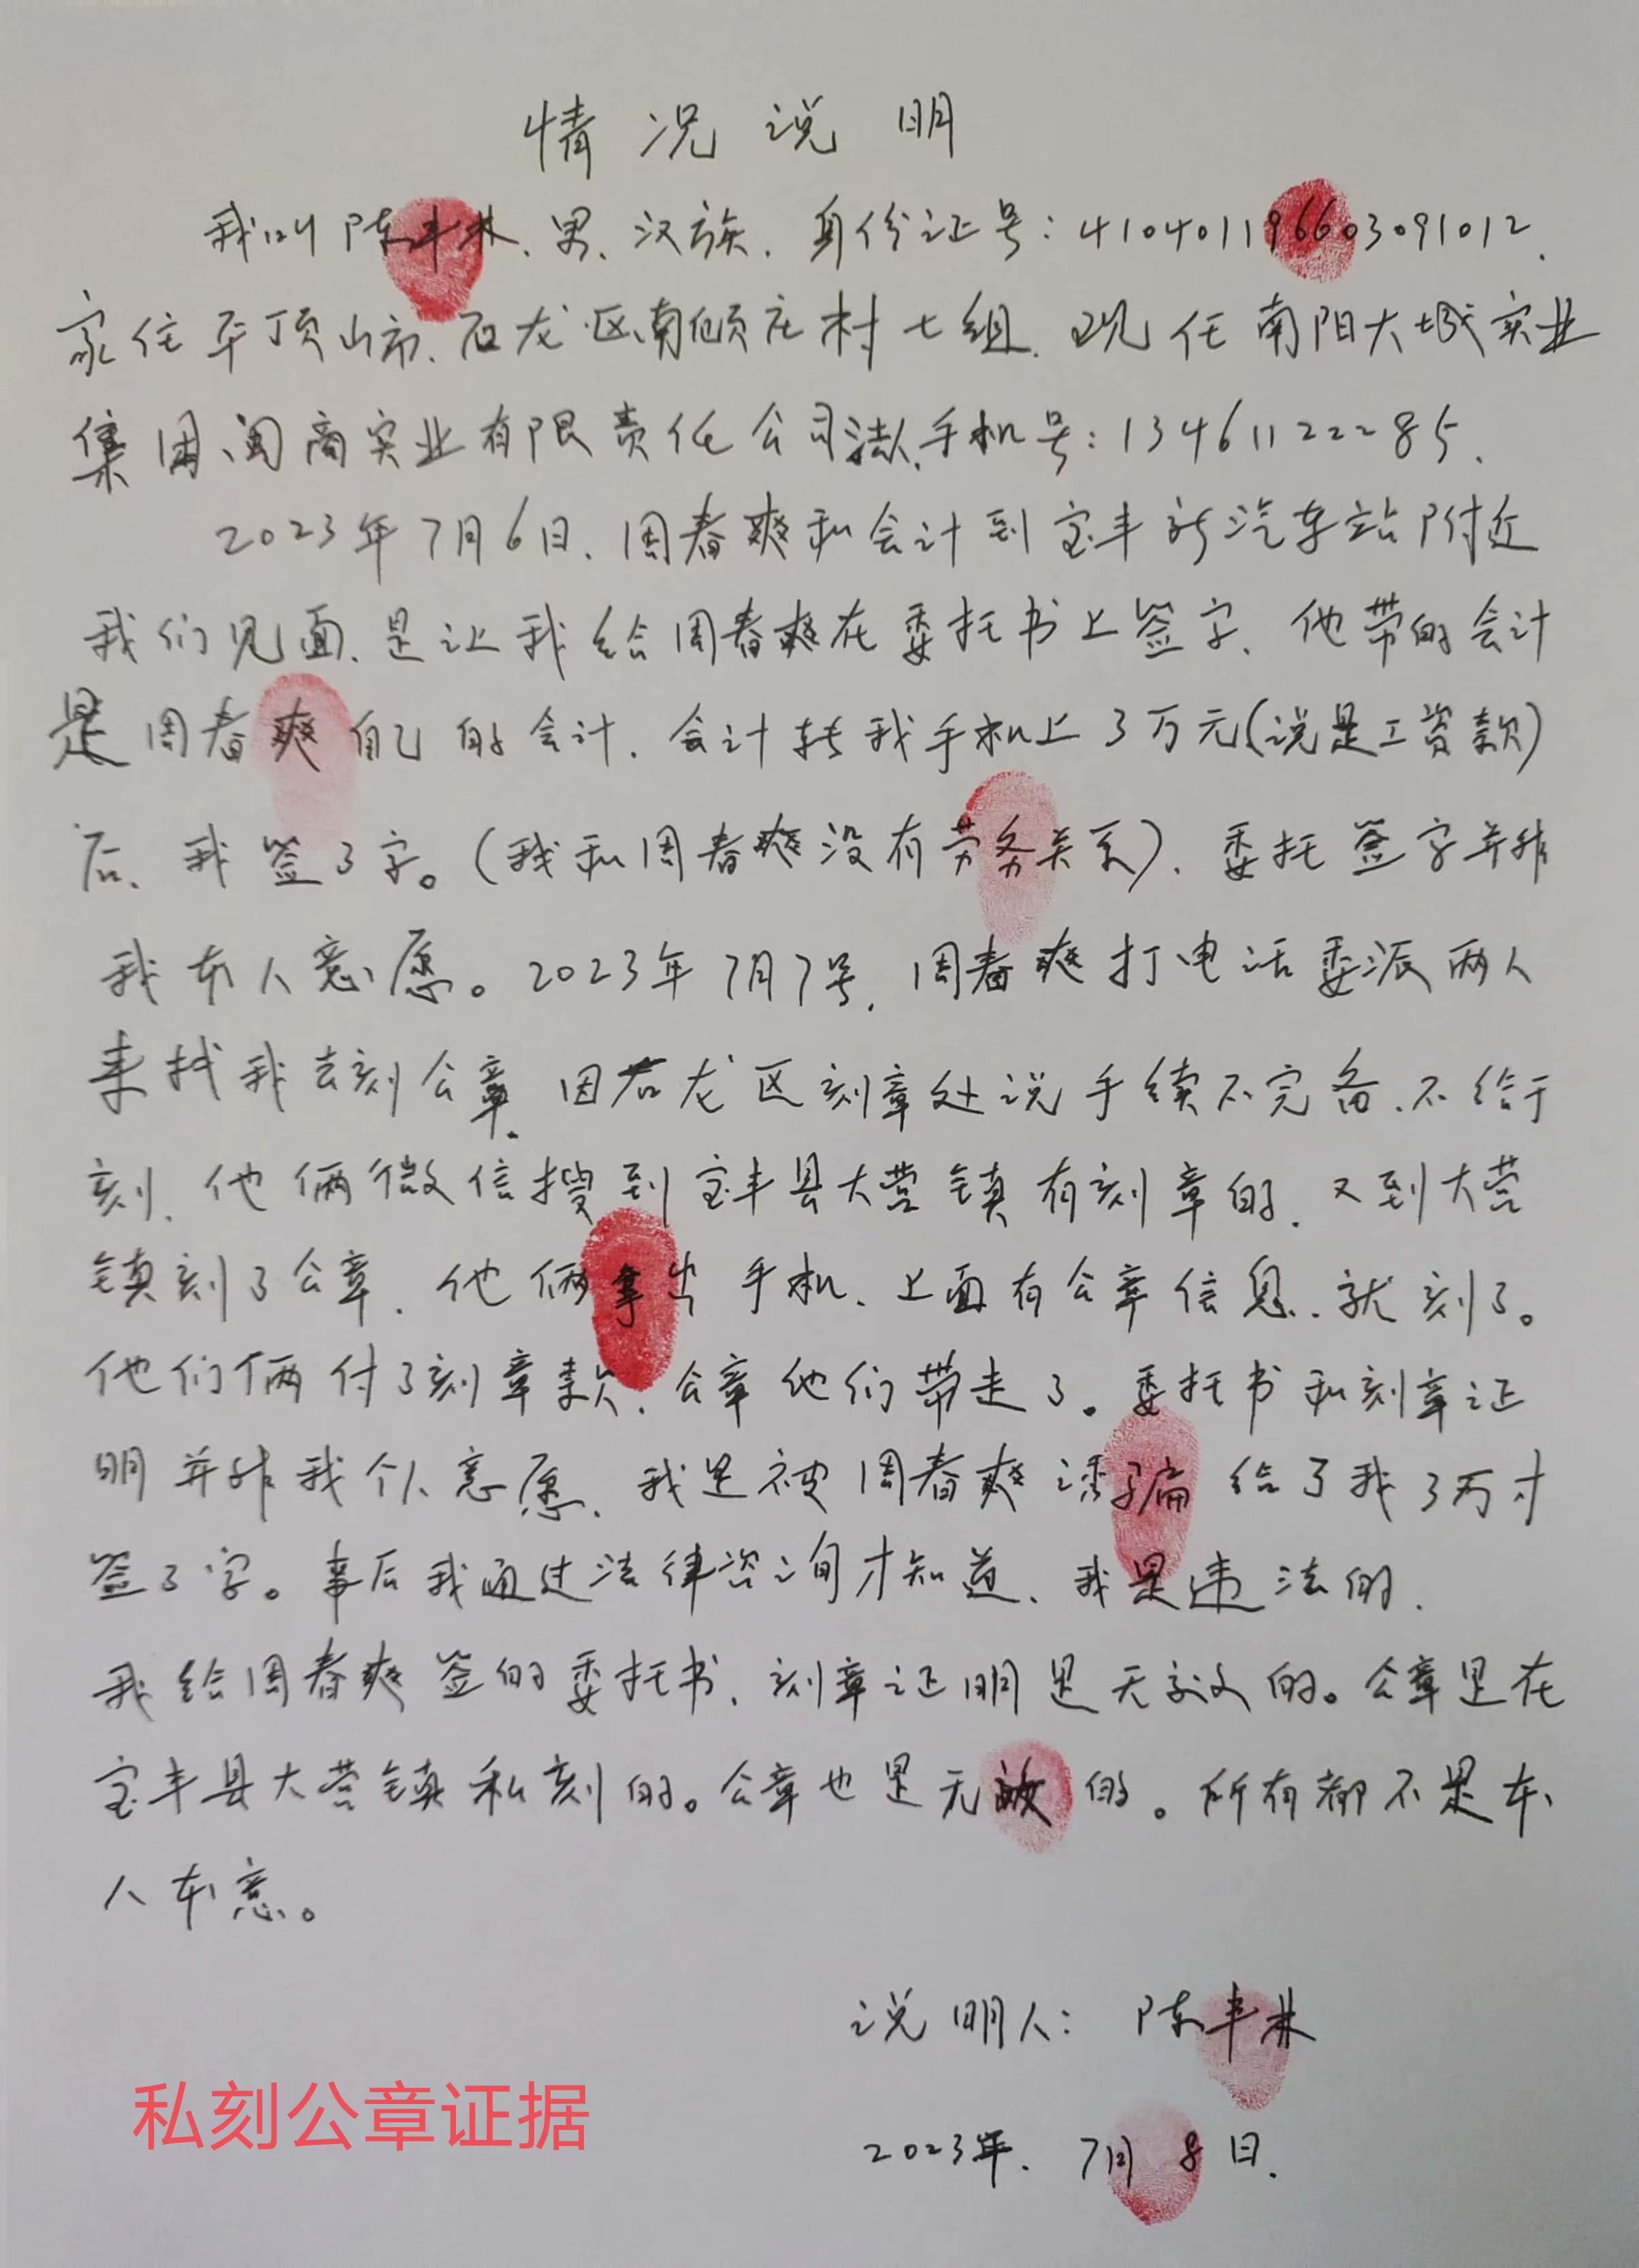 情况说明
我叫陈丰林、男、汉族、身份证号：410401196603091012.
家住平顶山市、石龙区南顾庄村七组、现任南阳大城实业
集团、闽商实业有限责任公司法人、手机号：13461122285.
2023年7月6日、周春爽和会计到宝丰新汽车站附近
我们见面、是让我给周春爽在委托书上签字、他带的会计
是周春爽自己的会计、会计转我手机上3万元(说是工资款)
后、我签了字。(我和周春爽没有劳务关系)、委托签字并非
我本人意愿。2023年7月7号、周春爽打电话委派两人
来找我去刻公章、因石龙区刻章处说手续不完备、不给于
刻、他俩微信搜到宝丰县大营镇有刻章的、又到大营
镇刻了公章、他俩拿出手机、上面有公章信息、就刻了。
他们俩付了刻章款、公章他们带走了。委托书和刻章证
明并非我个人意愿、我是被周春爽诱骗给了我3万才
签了字。事后我通过法律咨询才知道、我是违法的、
我给周春爽签的委托书、刻章证明是无效的。公章是在
宝丰县大营镇私刻的。公章也是无效的。所有都不是本
人本意。
说明人：陈丰林
私刻公章证据
2023年、7月8日.